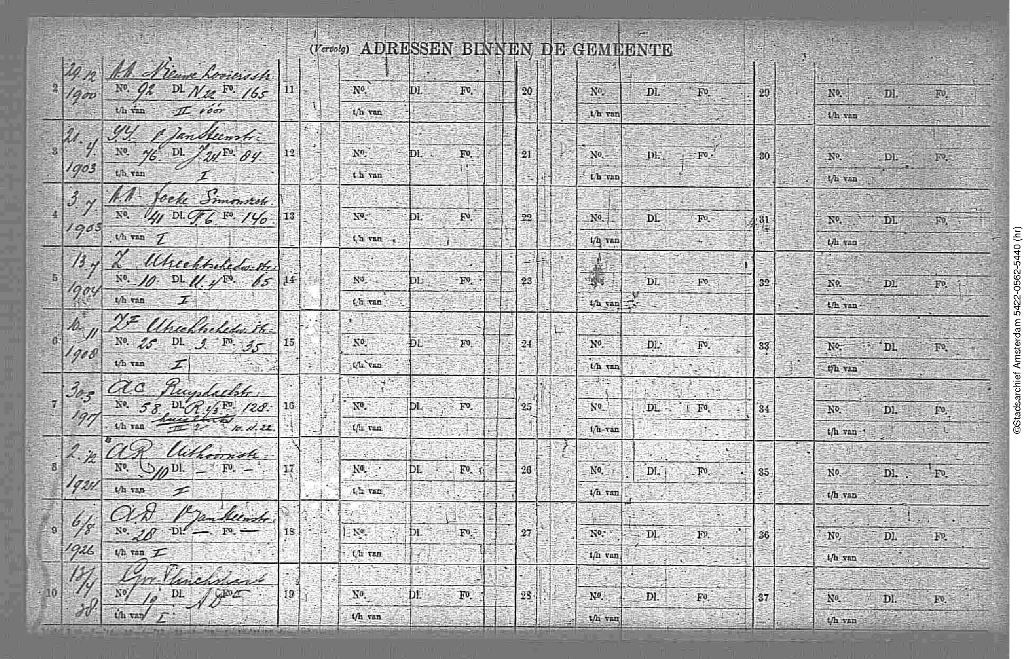 (Vervolg) ADRESSEN BINNEN DE GEMEENTE
29 12 1900
2
Nieuwe Looiersstr
No. 92 Dl. N 22 Fo. 165
t/h van II vóór
21 4 1903
3
YY 1e Jan Steenstr.
No. 76 Dl. J 24 Fo. 84
t/h van I
3 7 1903
4
Fokke Simonszstr.
No. 41 Dl. F. 6 Fo. 140
t/h van I
13 7 1904
5
Z Utrechtschedw. str.
No. 10 Dl. U. 4 Fo. 65
t/h van I
11 1908
6
Utrechtschedw. str.
No. 25 Dl. 3 Fo. 35
t/h van I
30 3
7
AC Ruysdaelstr.
No. 58 Dl. Fo. 128
t/h van 10.11.22
2 12 1924
8
AR Uithoornstr.
No. 10 Dl. — Fo. —
t/h van I
6/8 1926
9
AD 1e Jan Steenstr.
No. 28 Dl. — Fo. —
t/h van I
13/4 28
10
Gov. Flinckstraat
No. Dl. Fo.
t/h van I
11 No. Dl. Fo.
t/h van
12 No. Dl. Fo.
t/h van
13 No. Dl. Fo.
t/h van
14 No. Dl. Fo.
t/h van
15 No. Dl. Fo.
t/h van
16 No. Dl. Fo.
t/h van
17 No. Dl. Fo.
t/h van
18 No. Dl. Fo.
t/h van
19 No. Dl. Fo.
t/h van
20 No. Dl. Fo.
t/h van
21 No. Dl. Fo.
t/h van
22 No. Dl. Fo.
t/h van
23 No. Dl. Fo.
t/h van
24 No. Dl. Fo.
t/h van
25 No. Dl. Fo.
t/h van
26 No. Dl. Fo.
t/h van
27 No. Dl. Fo.
t/h van
28 No. Dl. Fo.
t/h van
29 No. Dl. Fo.
t/h van
30 No. Dl. Fo.
t/h van
31 No. Dl. Fo.
t/h van
32 No. Dl. Fo.
t/h van
33 No. Dl. Fo.
t/h van
34 No. Dl. Fo.
t/h van
35 No. Dl. Fo.
t/h van
36 No. Dl. Fo.
t/h van
37 No. Dl. Fo.
t/h van
©Stadsarchief Amsterdam 5422-0562-5440 (hr)